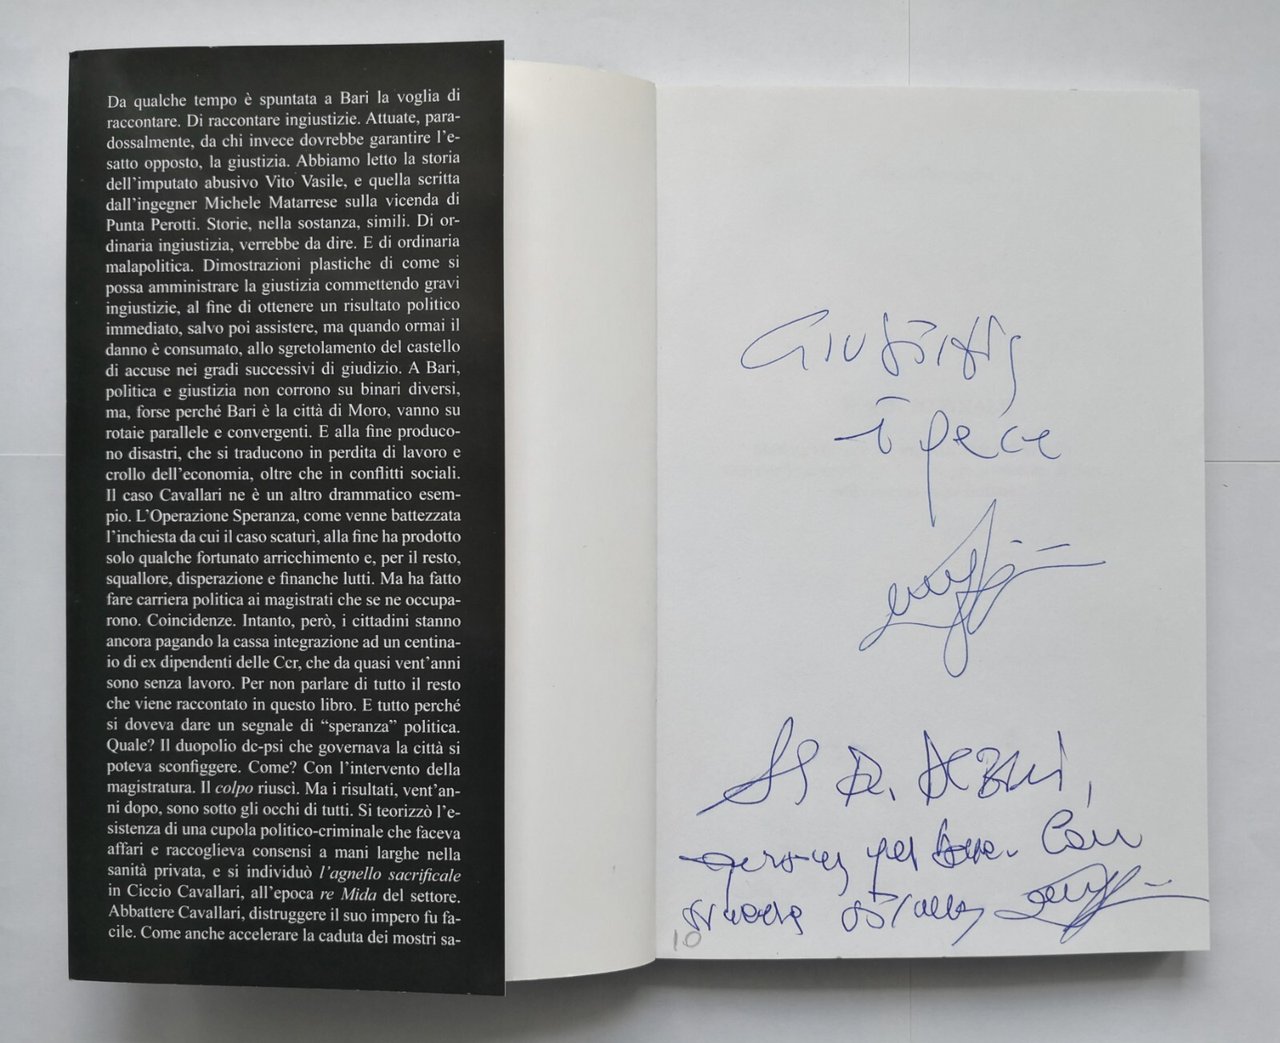 Da qualche tempo è spuntata a Bari la voglia di
raccontare. Di raccontare ingiustizie. Attuate, para-
dossalmente, da chi invece dovrebbe garantire l'e-
satto opposto, la giustizia. Abbiamo letto la storia
dell'imputato abusivo Vito Vasile, e quella scritta
dall'ingegner Michele Matarrese sulla vicenda di
Punta Perotti. Storie, nella sostanza, simili. Di or-
dinaria ingiustizia, verrebbe da dire. E di ordinaria
malapolitica. Dimostrazioni plastiche di come si
possa amministrare la giustizia commettendo gravi
ingiustizie, al fine di ottenere un risultato politico
immediato, salvo poi assistere, ma quando ormai il
danno è consumato, allo sgretolamento del castello
di accuse nei gradi successivi di giudizio. A Bari,
politica e giustizia non corrono su binari diversi,
ma, forse perché Bari è la città di Moro, vanno su
rotaie parallele e convergenti. E alla fine produco-
no disastri, che si traducono in perdita di lavoro e
crollo dell'economia, oltre che in conflitti sociali.
Il caso Cavallari ne è un altro drammatico esem-
pio. L'Operazione Speranza, come venne battezzata
l'inchiesta da cui il caso scaturì, alla fine ha prodotto
solo qualche fortunato arricchimento e, per il resto,
squallore, disperazione e finanche lutti. Ma ha fatto
fare carriera politica ai magistrati che se ne occupa-
rono. Coincidenze. Intanto, però, i cittadini stanno
ancora pagando la cassa integrazione ad un centina-
io di ex dipendenti delle Ccr, che da quasi vent'anni
sono senza lavoro. Per non parlare di tutto il resto
che viene raccontato in questo libro. E tutto perché
si doveva dare un segnale di “speranza” politica.
Quale? Il duopolio dc-psi che governava la città si
poteva sconfiggere. Come? Con l'intervento della
magistratura. Il colpo riuscì. Ma i risultati, vent'an-
ni dopo, sono sotto gli occhi di tutti. Si teorizzò l'e-
sistenza di una cupola politico-criminale che faceva
affari e raccoglieva consensi a mani larghe nella
sanità privata, e si individuò l'agnello sacrificale
in Ciccio Cavallari, all'epoca re Mida del settore.
Abbattere Cavallari, distruggere il suo impero fu fa-
cile. Come anche accelerare la caduta dei mostri sa-
Giustizia
è pace
per bene. Con
stima
10